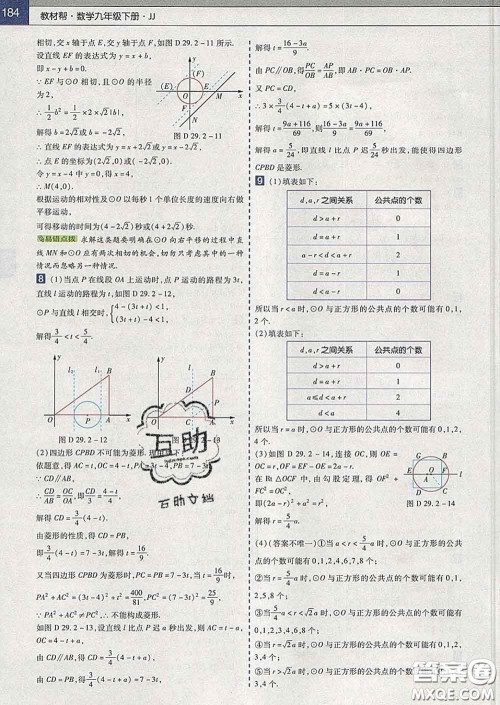 184
教材帮·数学九年级下册·JJ
相切,交x轴于点E,交y轴于点F,如图D29.2-11所示.
设直线EF的表达式为y=x+b,
即x-y+b=0.
∵EF与⊙O相切,且⊙O的半径
为2,
∴1/2 b²=1/2×2√2|b|,
解得b=2√2或b=-2√2,
∴直线EF的表达式为y=x+2√2或y=x-2√2,
图D29.2-11
∴点E的坐标为(2√2,0)或(-2√2,0).
令y=x-4中的y=0,得x=4,
∴M(4,0).
根据运动的相对性及⊙O以每秒1个单位长度的速度向右做
平移运动,
可得移动的时间为(4-2√2)秒或(4+2√2)秒.
易错点拨 求解这类题要明确在⊙O向右平移的过程中直
线MN和⊙O应有两次相切的机会,切勿只考虑其中的一种
情况而忽略另一种情况.
8 (1)当点P在线段OA上运动时,点P运动的路程为3t,
直线l运动的路程为t,如图D29.2-12,
当⊙P与直线l相交时,{4-(3t+t)<1, (3t+t)-4<1.
解得3/4<t<5/4.
图D29.2-12
图D29.2-13
(2)四边形CPBD不可能为菱形.理由如下:
依题意,得AC=t,OC=4-t,PA=3t-4,PB=7-3t.
∵CD∥AB,
∴CD/AB=OC/OA,即CD/3=(4-t)/4,
∴CD=3/4(4-t).
由菱形的性质,得CD=PB,
即3/4(4-t)=7-3t,解得t=16/9.
又当四边形CPBD为菱形时,PC=PB=7-3t,当t=16/9时,
PA²+AC²=(3t-4)²+t²=400/81,PC²=(7-3t)²=25/9,
∴PA²+AC²≠PC²,∴不能构成菱形.
如图D29.2-13,设直线l比点P迟a秒出发,则AC=t-a,
OC=4-t+a.
由CD∥AB,得CD=3/4(4-t+a),
由CD=PB,得3/4(4-t+a)=7-3t,
解得t=(16-3a)/9.
由PC∥OB,得PC/OB=AP/AB,即PC·AB=OB·AP.
又PC=CD,
∴3×3/4(4-t+a)=5×(3t-4),
解得t=(9a+116)/69,∴(16-3a)/9=(9a+116)/69,
解得a=5/24,即直线l比点P迟5/24秒出发,能使得四边形
CPBD是菱形.
9 (1)填表如下:
d,a,r之间关系 公共点的个数
d>a+r 0
d=a+r 1
a-r<d<a+r 2
d=a-r 1
d<a-r 0
所以当r<a时,⊙O与正方形的公共点的个数可能有0,1,
2个.
(2)填表如下:
d,a,r之间关系 公共点的个数
d>a+r 0
d=a+r 1
a≤d<a+r 2
d<a 4
所以当r=a时,⊙O与正方形的公共点的个数可能有0,1,
2,4个.
图D29.2-14
(4)(答案不唯一)①当a<r<5/4a时,⊙O与正方形的公共
点的个数可能有0,1,2,4,6,7,8个;
②当r=5/4a时,⊙O与正方形的公共点的个数可能有0,1,
2,5,8个;
③当5/4a<r<√2a时,⊙O与正方形的公共点的个数可能
④当r=√2a时,⊙O与正方形的公共点的个数可能有0,1,
2,3,4个;
2,3,4个.
互助
互助文档
答案圈
MXQE.COM